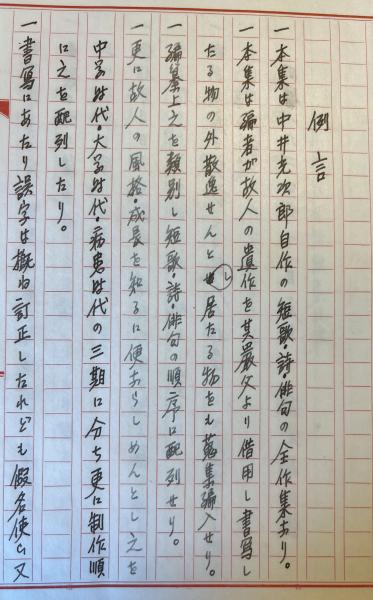 例言
一 本集は中井克次郎自作の短歌・詩・俳句の全作集なり。
一 本集は編者が故人の遺作を其嚴父より借用し書写し
たる物の外散逸せんとし居たる物をも蒐集編入せり。
一 編纂上之を類別し短歌・詩・俳句の順序に配列せり。
一 更に故人の風格・成長を知るに便あらしめんとし之を
中学時代・大学時代・病患時代の三期に分ち更に制作順
に之を配列したり。
一 書写にあたり誤字は概ね訂正したれども假名使ひ又